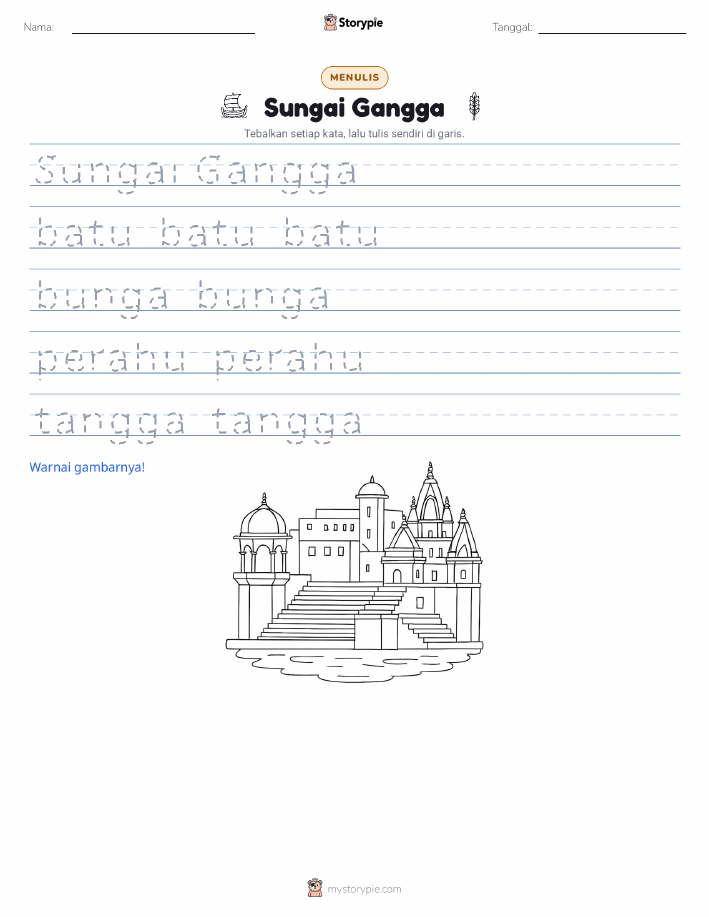 Nama:
Storypie
Tanggal:
MENULIS
Sungai Gangga
Tebalkan setiap kata, lalu tulis sendiri di garis.
Sungai Gangga
batu batu batu
bunga bunga
perahu perahu
tangga tangga
Warnai gambarnya!
mystorypie.com